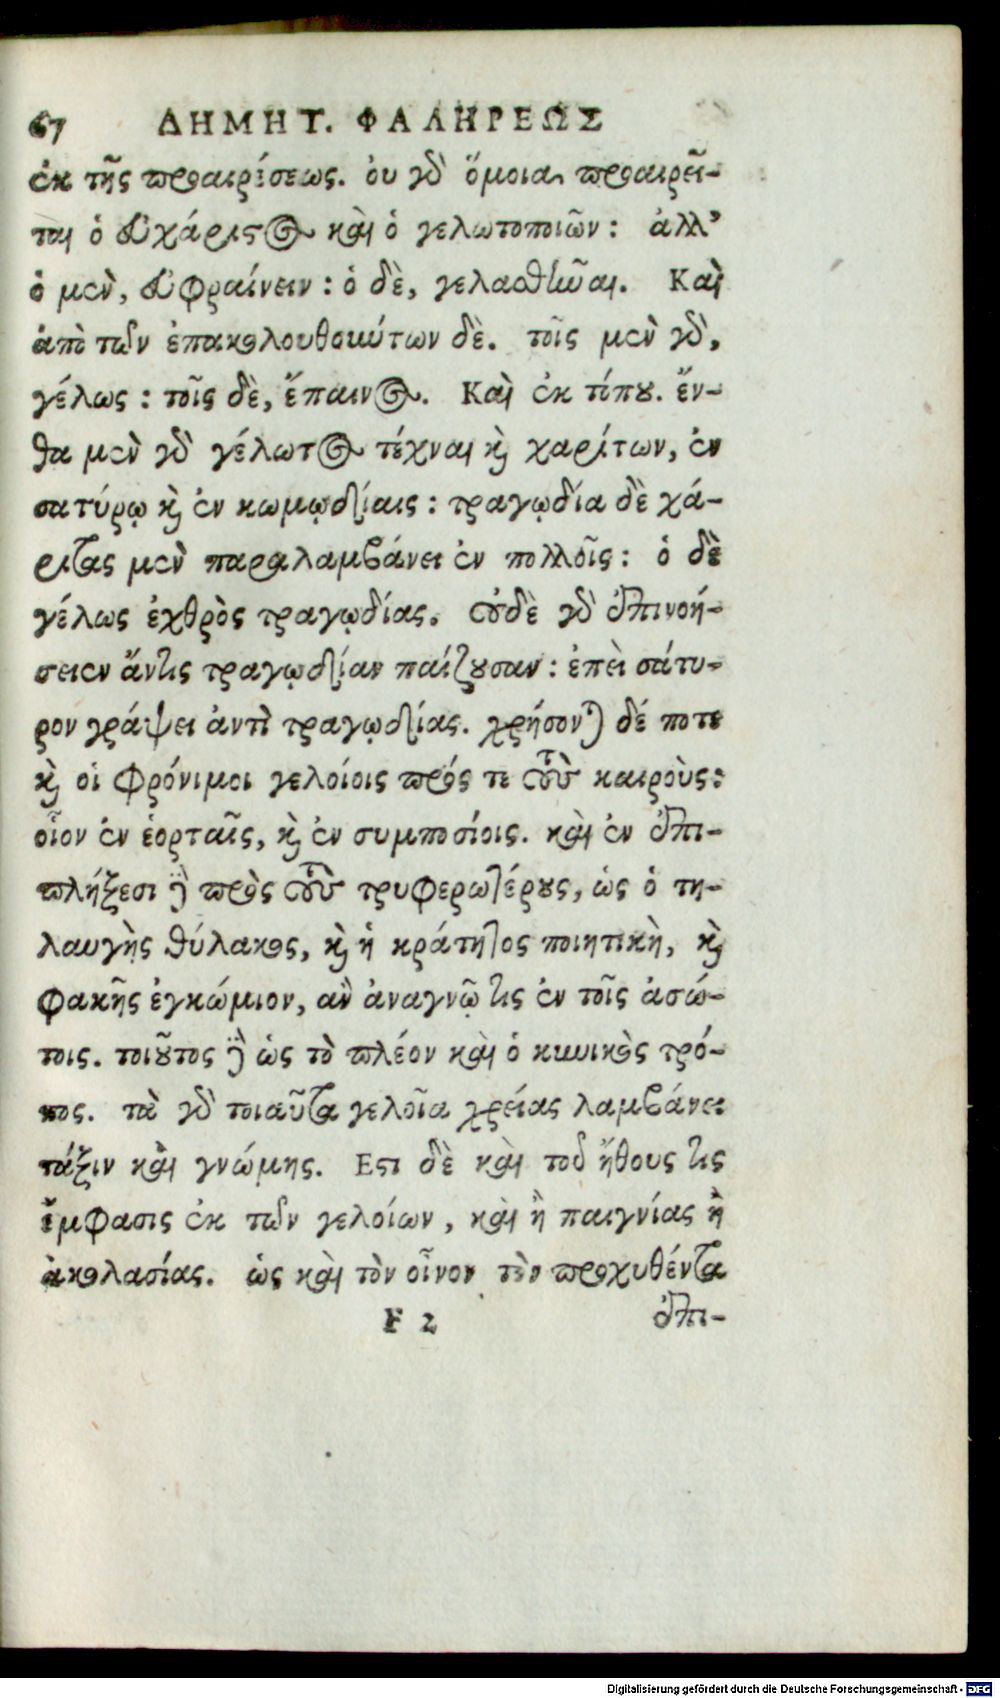 67 ΔΗΜΗΤ. ΦΑΛΗΡΕΩΣ
ἐκ τῆς προαιρέσεως. ὀυ γὸ ὅμοια προαιρεῖ-
ται ὁ ἐυχάριστος καὶ ὁ γελωτοποιῶν : ἀλλ’
ὁ μὲν, ἐυφραίνειν : ὁ δὲ, γελασθῆναι. Καὶ
ἀπὸ τῶν ἐπακολουθούντων δὲ. τοῖς μὲν γὸ,
γέλως : τοῖς δὲ, ἔπαινος. Καὶ ἐκ τόπου. ἔν-
θα μὲν γὸ γέλωτος τέχναι κὶ χαρίτων, ἐν
σατύρῳ κὶ ἐν κωμῳδίαις : τραγῳδία δὲ χά-
ριτας μὲν παραλαμβάνει ἐν πολλοῖς : ὁ δὲ
γέλως ἐχθρὸς τραγῳδίας. ὀυδὲ γὸ ἐπινοή-
σειεν ἄντις τραγῳδίαν παίζουσαν : ἐπεὶ σάτυ-
ρον γράψει ἀντὶ τραγῳδίας. χρήσονται δέ ποτε
κὶ οἱ φρόνιμοι γελοίοις πρός τε τοὺς καιροὺς :
οἷον ἐν ἑορταῖς, κὶ ἐν συμποσίοις. καὶ ἐν ἐπι-
πλήξεσι δὲ πρὸς τοὺς τρυφερωτέρους, ὡς ὁ τη-
λαυγὴς θύλακος, κὶ ἡ κράτητος ποιητικὴ, κὶ
φακῆς ἐγκώμιον, ἂν ἀναγνῷ τις ἐν τοῖς ἀσώ-
τοις. τοιοῦτος δὲ ὡς τὸ πλέον καὶ ὁ κυνικὸς τρό-
πος. τὰ γὸ τοιαῦτα γελοῖα χρείας λαμβάνει
τάξιν καὶ γνώμης. Εστι δὲ καὶ τοῦ ἤθους τις
ἔμφασις ἐκ τῶν γελοίων, καὶ ἢ παιγνίας ἢ
ἀκολασίας. ὡς καὶ τὸν οἶνον τὸν προχυθέντα
F 2 ἐπι-
Digitalisierung gefördert durch die Deutsche Forschungsgemeinschaft - DFG